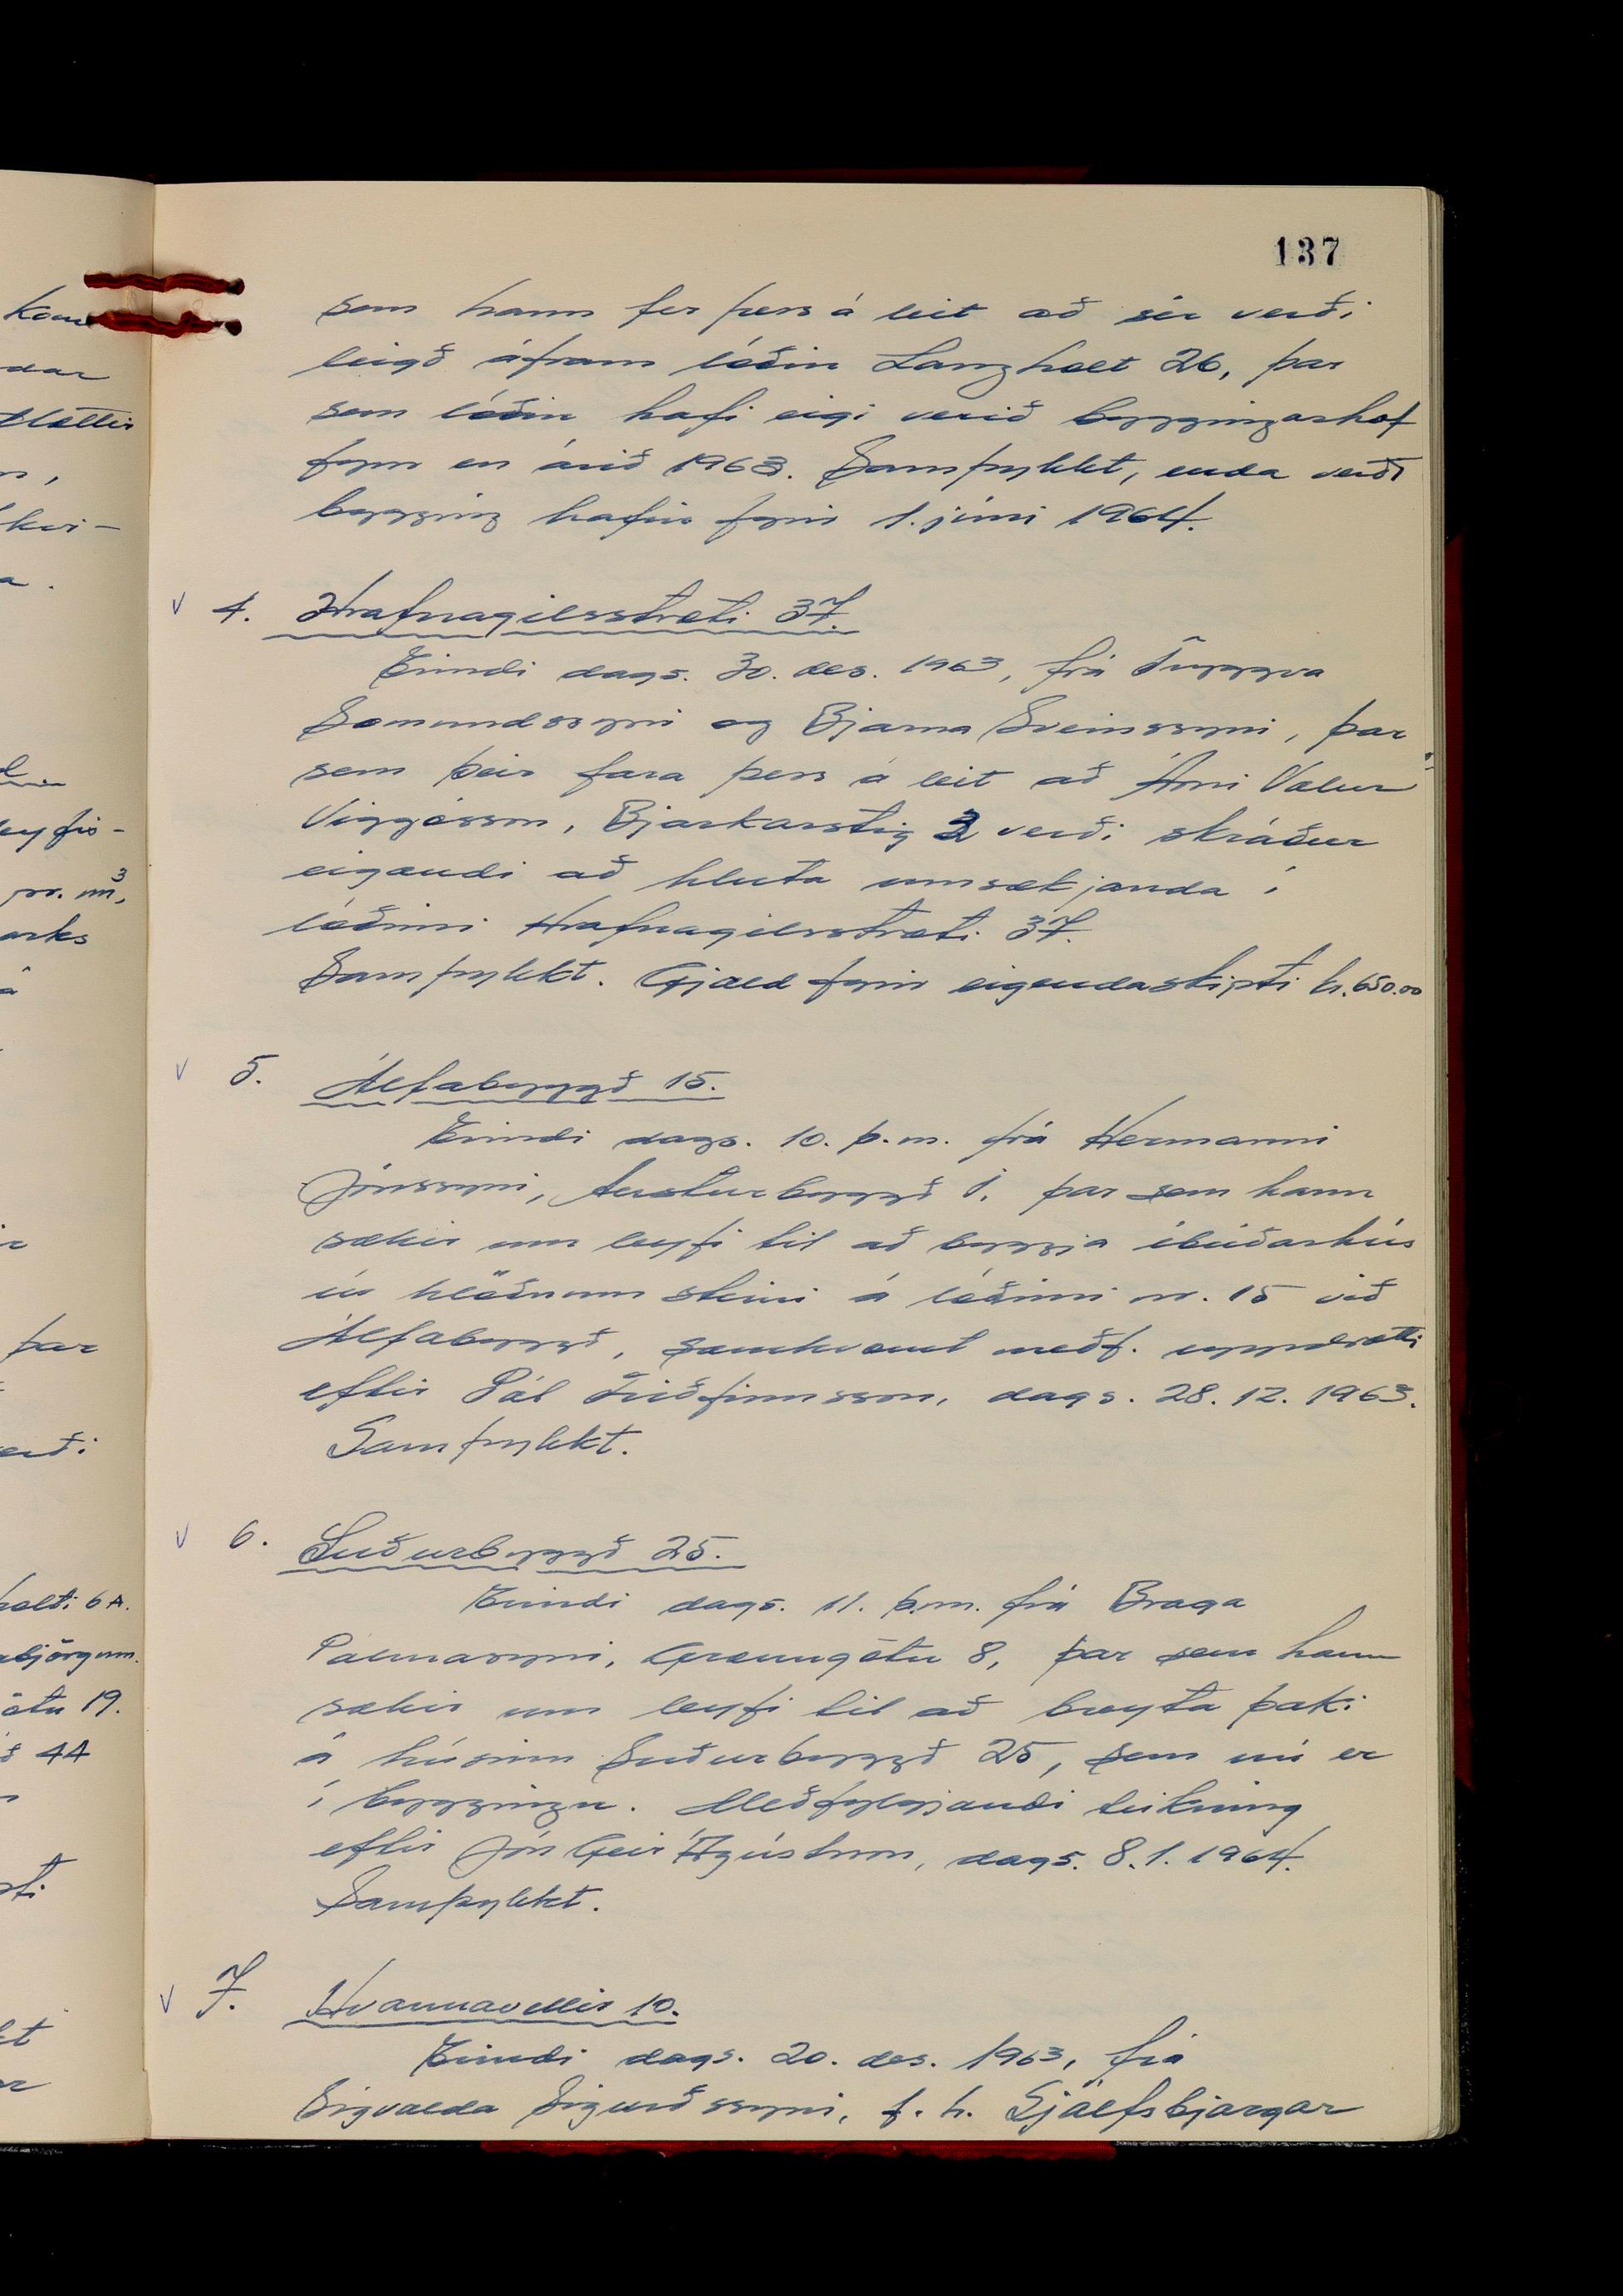 137
som hann fer þess á leit að sér verði
leigð áfram lóðin Langholt 26, þar
sem lóðin hafi eigi verið byggingarhæf
fyrr en árið 1963. Samþykkt, enda verði
bygging hafin fyrir 1. júní 1964.
4. Hrafnagilsstræti 37.
Erindi dags. 30. des. 1963, frá Tryggva
Sæmundssyni og Bjarna Sveinssyni, þar
sem þeir fara þess á leit að Árni Valur
Viggósson, Bjarkarstíg 3 verði skráður
eigandi að hluta umsækjanda í
lóðinni Hrafnagilsstræti 37.
Samþykkt. Gjald fyrir eigendaskipti kr. 650.00
5. Álfabyggð 15.
Erindi dags. 10. þ.m. frá Hermanni
Jónssyni, Austurbyggð 1. þar sem hann
sækir um leyfi til að byggja íbúðarhús
úr hlöðnum steini á lóðinni nr. 15 við
Álfabyggð, samkvæmt meðf. uppdrætti
eftir Pál Friðfinnsson, dags. 28.12.1963.
Samþykkt.
6. Suðurbyggð 25.
Erindi dags. 11. þ.m. frá Braga
Pálmasyni, Grænugötu 8, þar sem hann
sækir um leyfi til að breyta þaki
á húsinu Suðurbyggð 25, sem nú er
í byggingu. Meðfylgjandi teikning
eftir Jón Geir Ágústsson, dags. 8.1.1964.
Samþykkt.
7. Hvannavellir 10.
Erindi dags. 20. des. 1963, frá
Sigvalda Sigurðssyni, f.h. Sjálfsbjargar